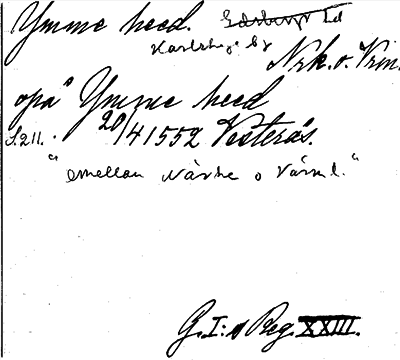 Ymme heed. Edsbergs hd
Karlskoga hd
Nrk. o. Vrm.
opå Ymme heed
S. 211. 20/4 1552 Vesterås.
"emellan Närke o Värml."
G. I:s Reg. XXIII.